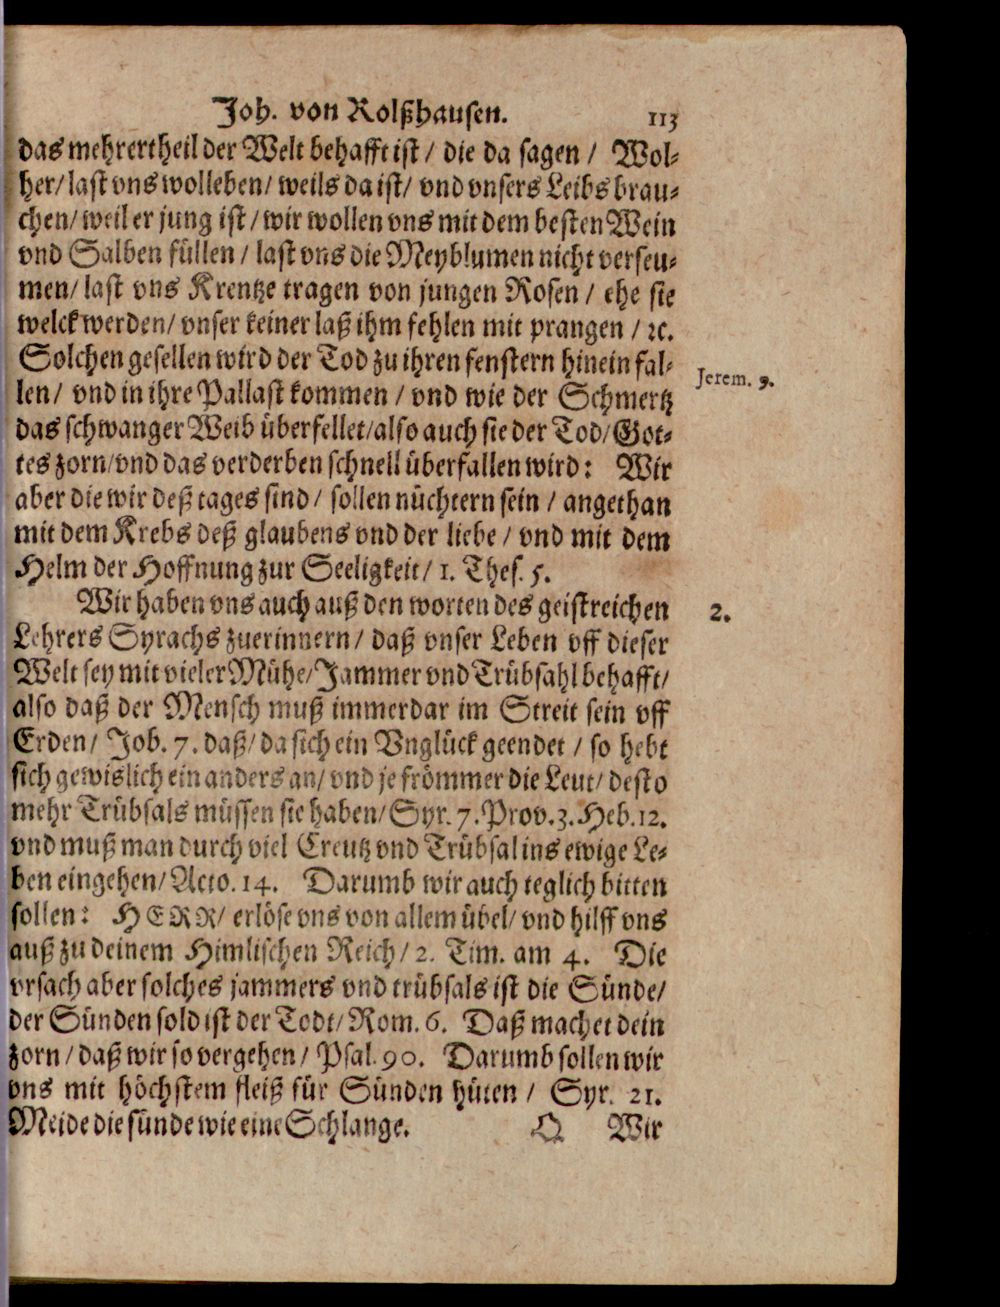 Joh. von Rolßhausen. 113
das mehrertheil der Welt behafft ist / die da sagen / Wol-
her/ last vns wolleben/ weils da ist/ vnd vnsers Leibs brau-
chen/ weil er jung ist / wir wollen vns mit dem besten Wein
vnd Salben füllen / last vns die Meyblumen nicht verseu-
men/ last vns Krentze tragen von jungen Rosen / ehe sie
welck werden/ vnser keiner laß ihm fehlen mit prangen / ꝛc.
Solchen gesellen wird der Tod zu ihren fenstern hinein fal-
len/ vnd in ihre Pallast kommen / vnd wie der Schmertz
Jerem. 9.
das schwanger Weib überfellet/ also auch sie der Tod/ Got-
tes zorn/ vnd das verderben schnell überfallen wird: Wir
aber die wir deß tages sind / sollen nüchtern sein / angethan
mit dem Krebs deß glaubens vnd der liebe / vnd mit dem
Helm der Hoffnung zur Seeligkeit/ 1. Thes. 5.
Wir haben vns auch auß den worten des geistreichen
2.
Lehrers Syrachs zuerinnern / daß vnser Leben vff dieser
Welt sey mit vieler Mühe/ Jammer vnd Trübsahl behafft/
also daß der Mensch muß immerdar im Streit sein vff
Erden/ Job. 7. daß/ da sich ein Vnglück geendet / so hebt
sich gewislich ein anders an/ vnd je frömmer die Leut/ desto
mehr Trübsals müssen sie haben/ Syr. 7. Prov. 3. Heb. 12.
vnd muß man durch viel Creutz vnd Trübsal ins ewige Le-
ben eingehen/ Acto. 14. Darumb wir auch teglich bitten
sollen: HERR/ erlöse vns von allem übel/ vnd hilff vns
auß zu deinem Himlischen Reich / 2. Tim. am 4. Die
vrsach aber solches jammers vnd trübsals ist die Sünde/
der Sünden sold ist der Todt/ Rom. 6. Daß machet dein
zorn / daß wir so vergehen / Psal. 90. Darumb sollen wir
vns mit höchstem fleiß für Sünden hüten / Syr. 21.
Meide die sünde wie eine Schlange. Q Wir